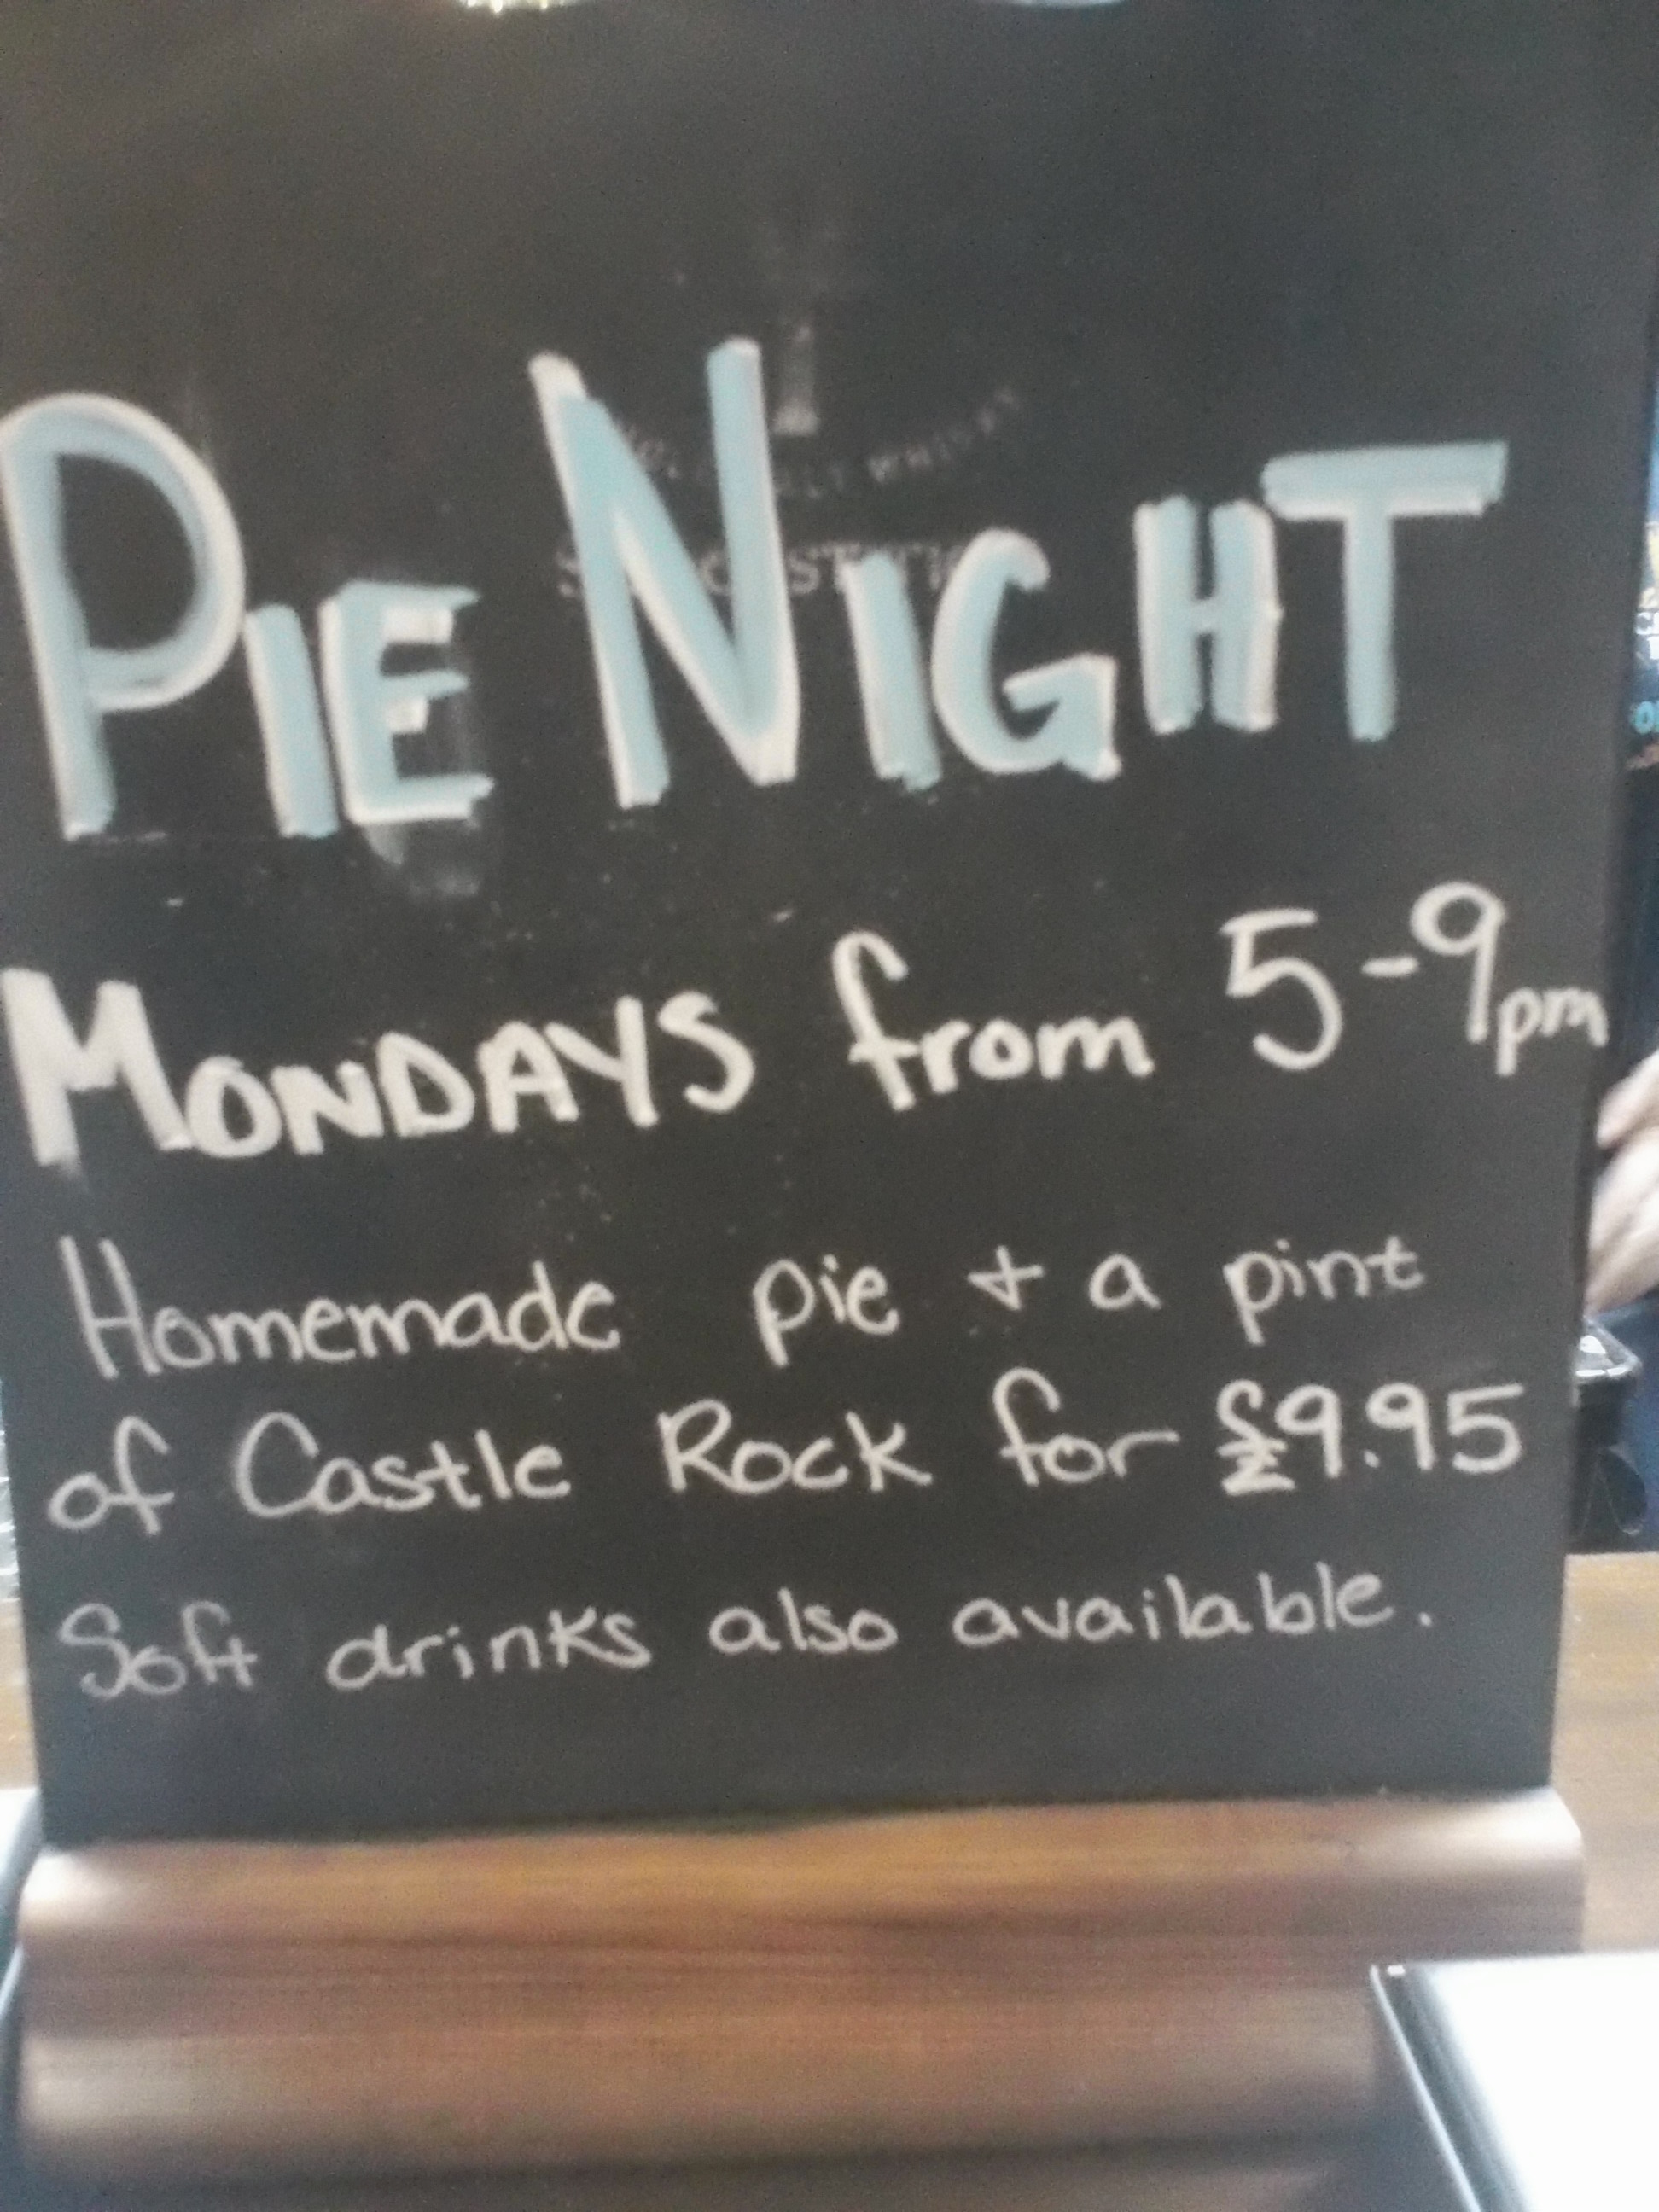 PIE NIGHT
MONDAYS from 5-9pm
Homemade pie + a pint
of Castle Rock for £9.95
Soft drinks also available.